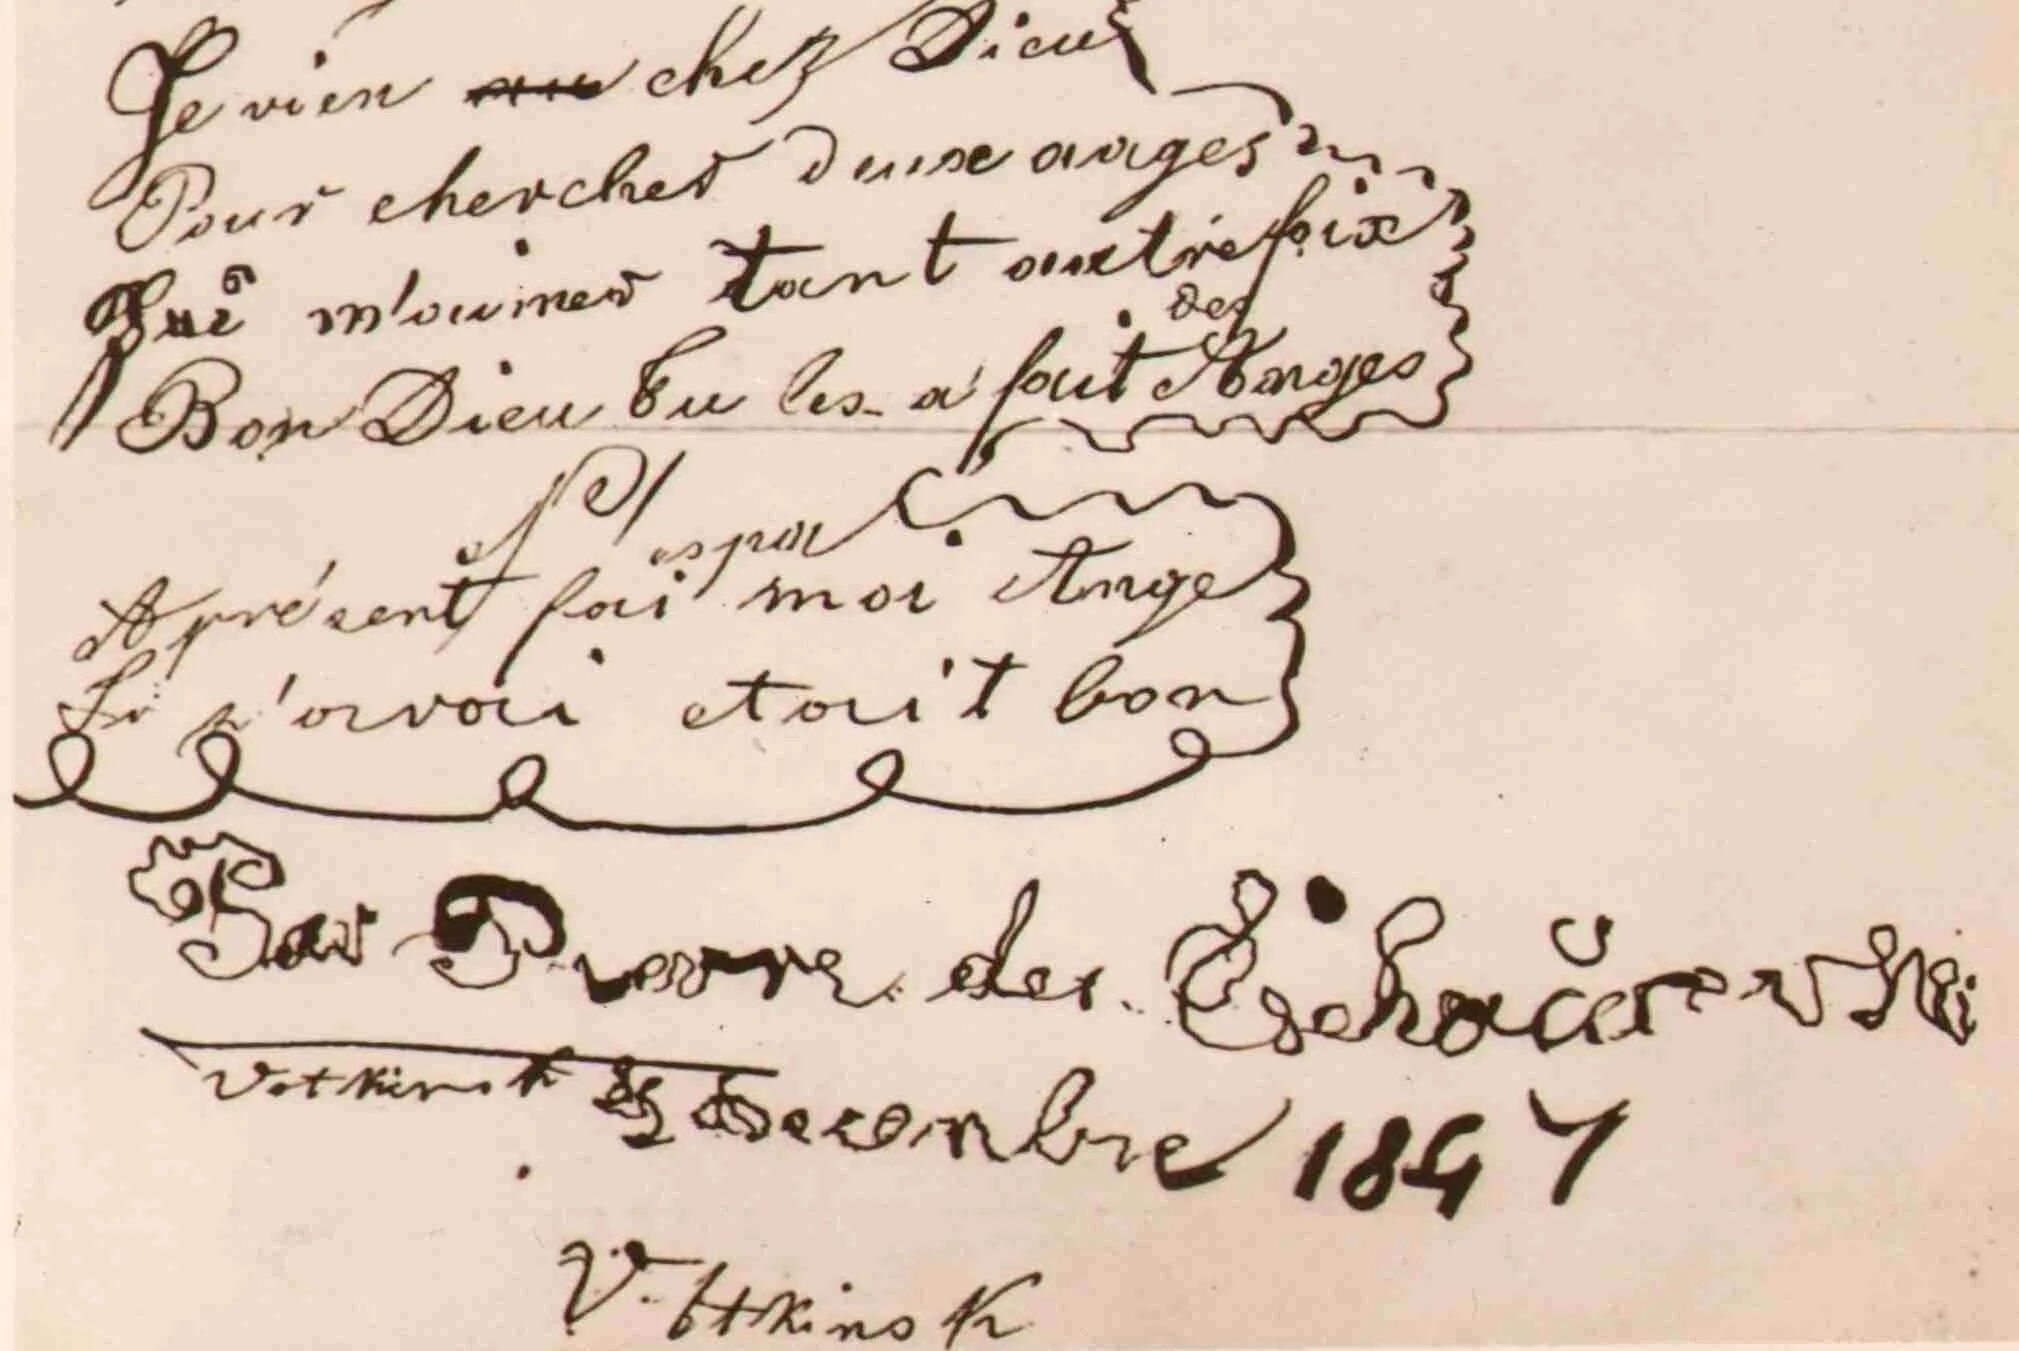 Je vien chez Dieu
Pour chercher deux anges
Qui m'aimer tant autrefoix
Bon Dieu tu les a fait des Anges
A présent fai moi Ange
Si j'avai etait bon
Par Pierre de Tschaikowski
Votkinsk Decembre 1847
Votkinsk